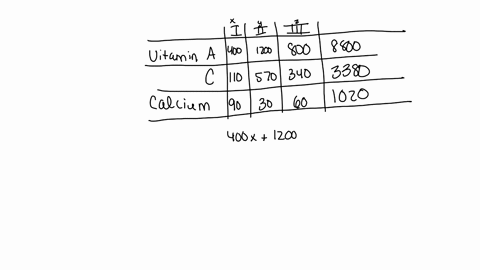 x y z
I II III
Vitamin A 400 1200 800 8800
C 110 570 340 3380
Calcium 90 30 60 1020
400x + 1200